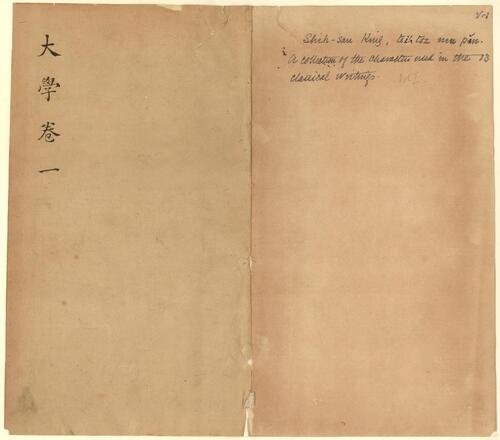 大學卷一
V-1
Shih-san King, tsĭ tsz mu pǎn.
A collection of the characters used in the 13
classical writings.